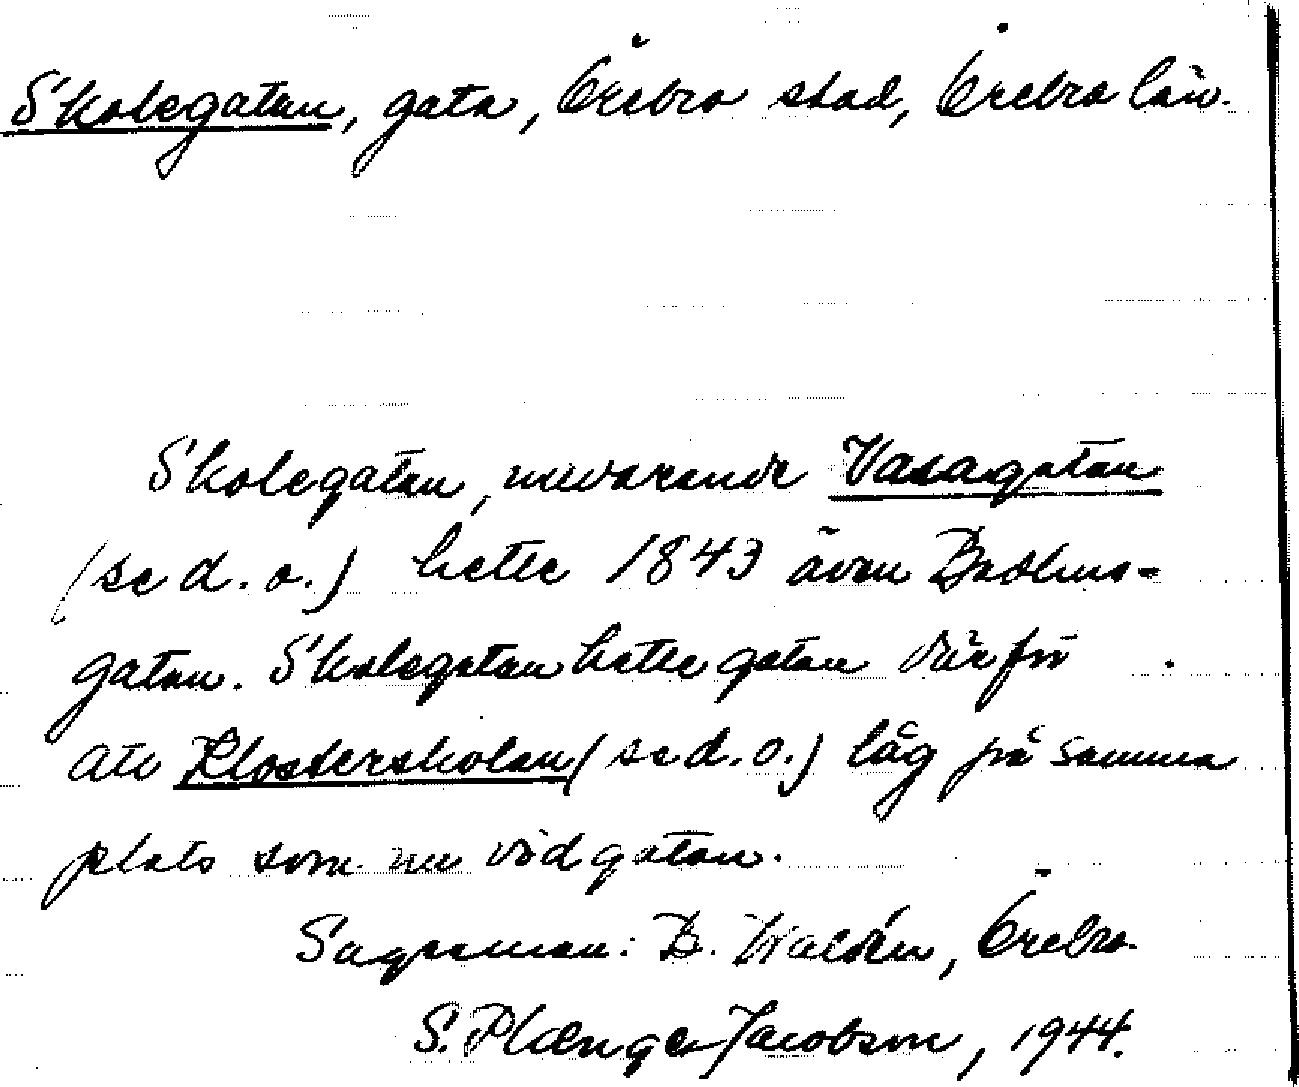 Skolegatan, gata, Örebro stad, Örebro län.
Skolegatan, nuvarande Vasagatan
(se d. o.) hette 1843 även Badhus-
gatan. Skolegatan hette gatan därför
att Klosterskolan (se d. o.) låg på samma
plats som nu vid gatan.
Sagesman: B. Waldén, Örebro.
S. Plænge Jacobson, 1944.